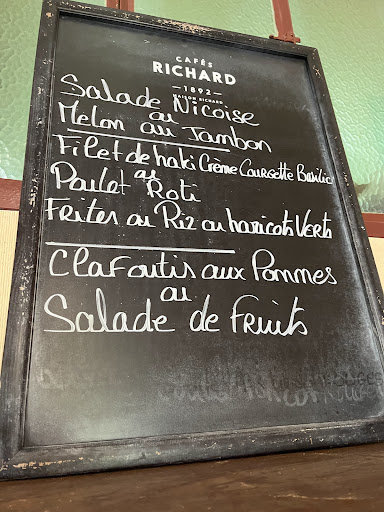 CAFÉS
RICHARD
— 1892 —
MAISON RICHARD
Salade Niçoise
ou
Melon au Jambon
Filet de haki Crème Courgette Basilic
ou
Poulet Roti
Frites ou Riz ou haricots Verts
Clafoutis aux Pommes
ou
Salade de Fruits